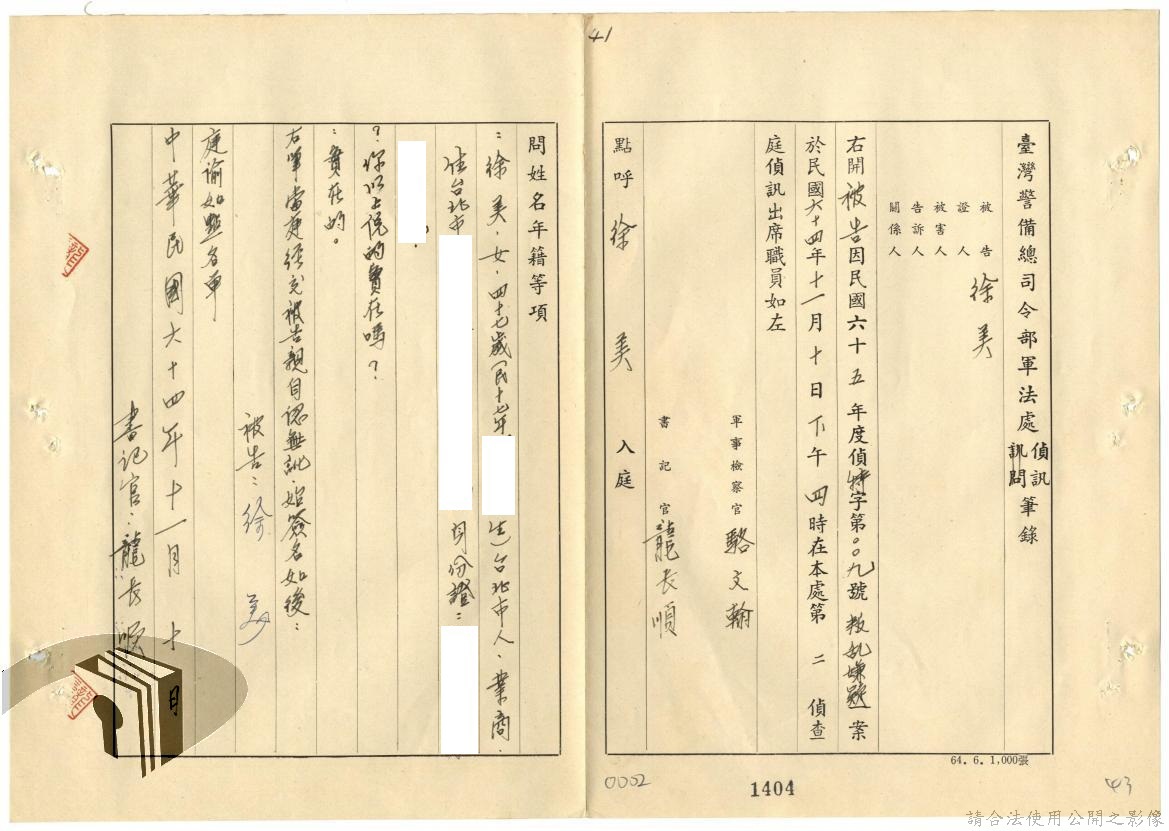 41
臺灣警備總司令部軍法處偵訊訊問筆錄
被告 徐 美
證人
被害人
告訴人
關係人
右開被告因民國六十五年度偵特字第〇〇九號叛乱嫌疑一案
於民國六十四年十一月十日下午四時在本處第二偵查
庭偵訊出席職員如左
軍事檢察官 駱文翰
書記官 龍長順
點呼 徐 美 入庭
64. 6. 1,000張
問姓名年籍等項
:徐美,女,四十七歲(民十七年 生)台北市人,業商,
住台北市 身份證:
?你以上說的實在嗎?
:實在的。
右筆當庭經交被告親自認無訛始簽名如後:
被告:徐 美
庭諭如點名單
中華民國六十四年十一月十日
書記官:龍長順
0002
1404
43
請合法使用公開之影像